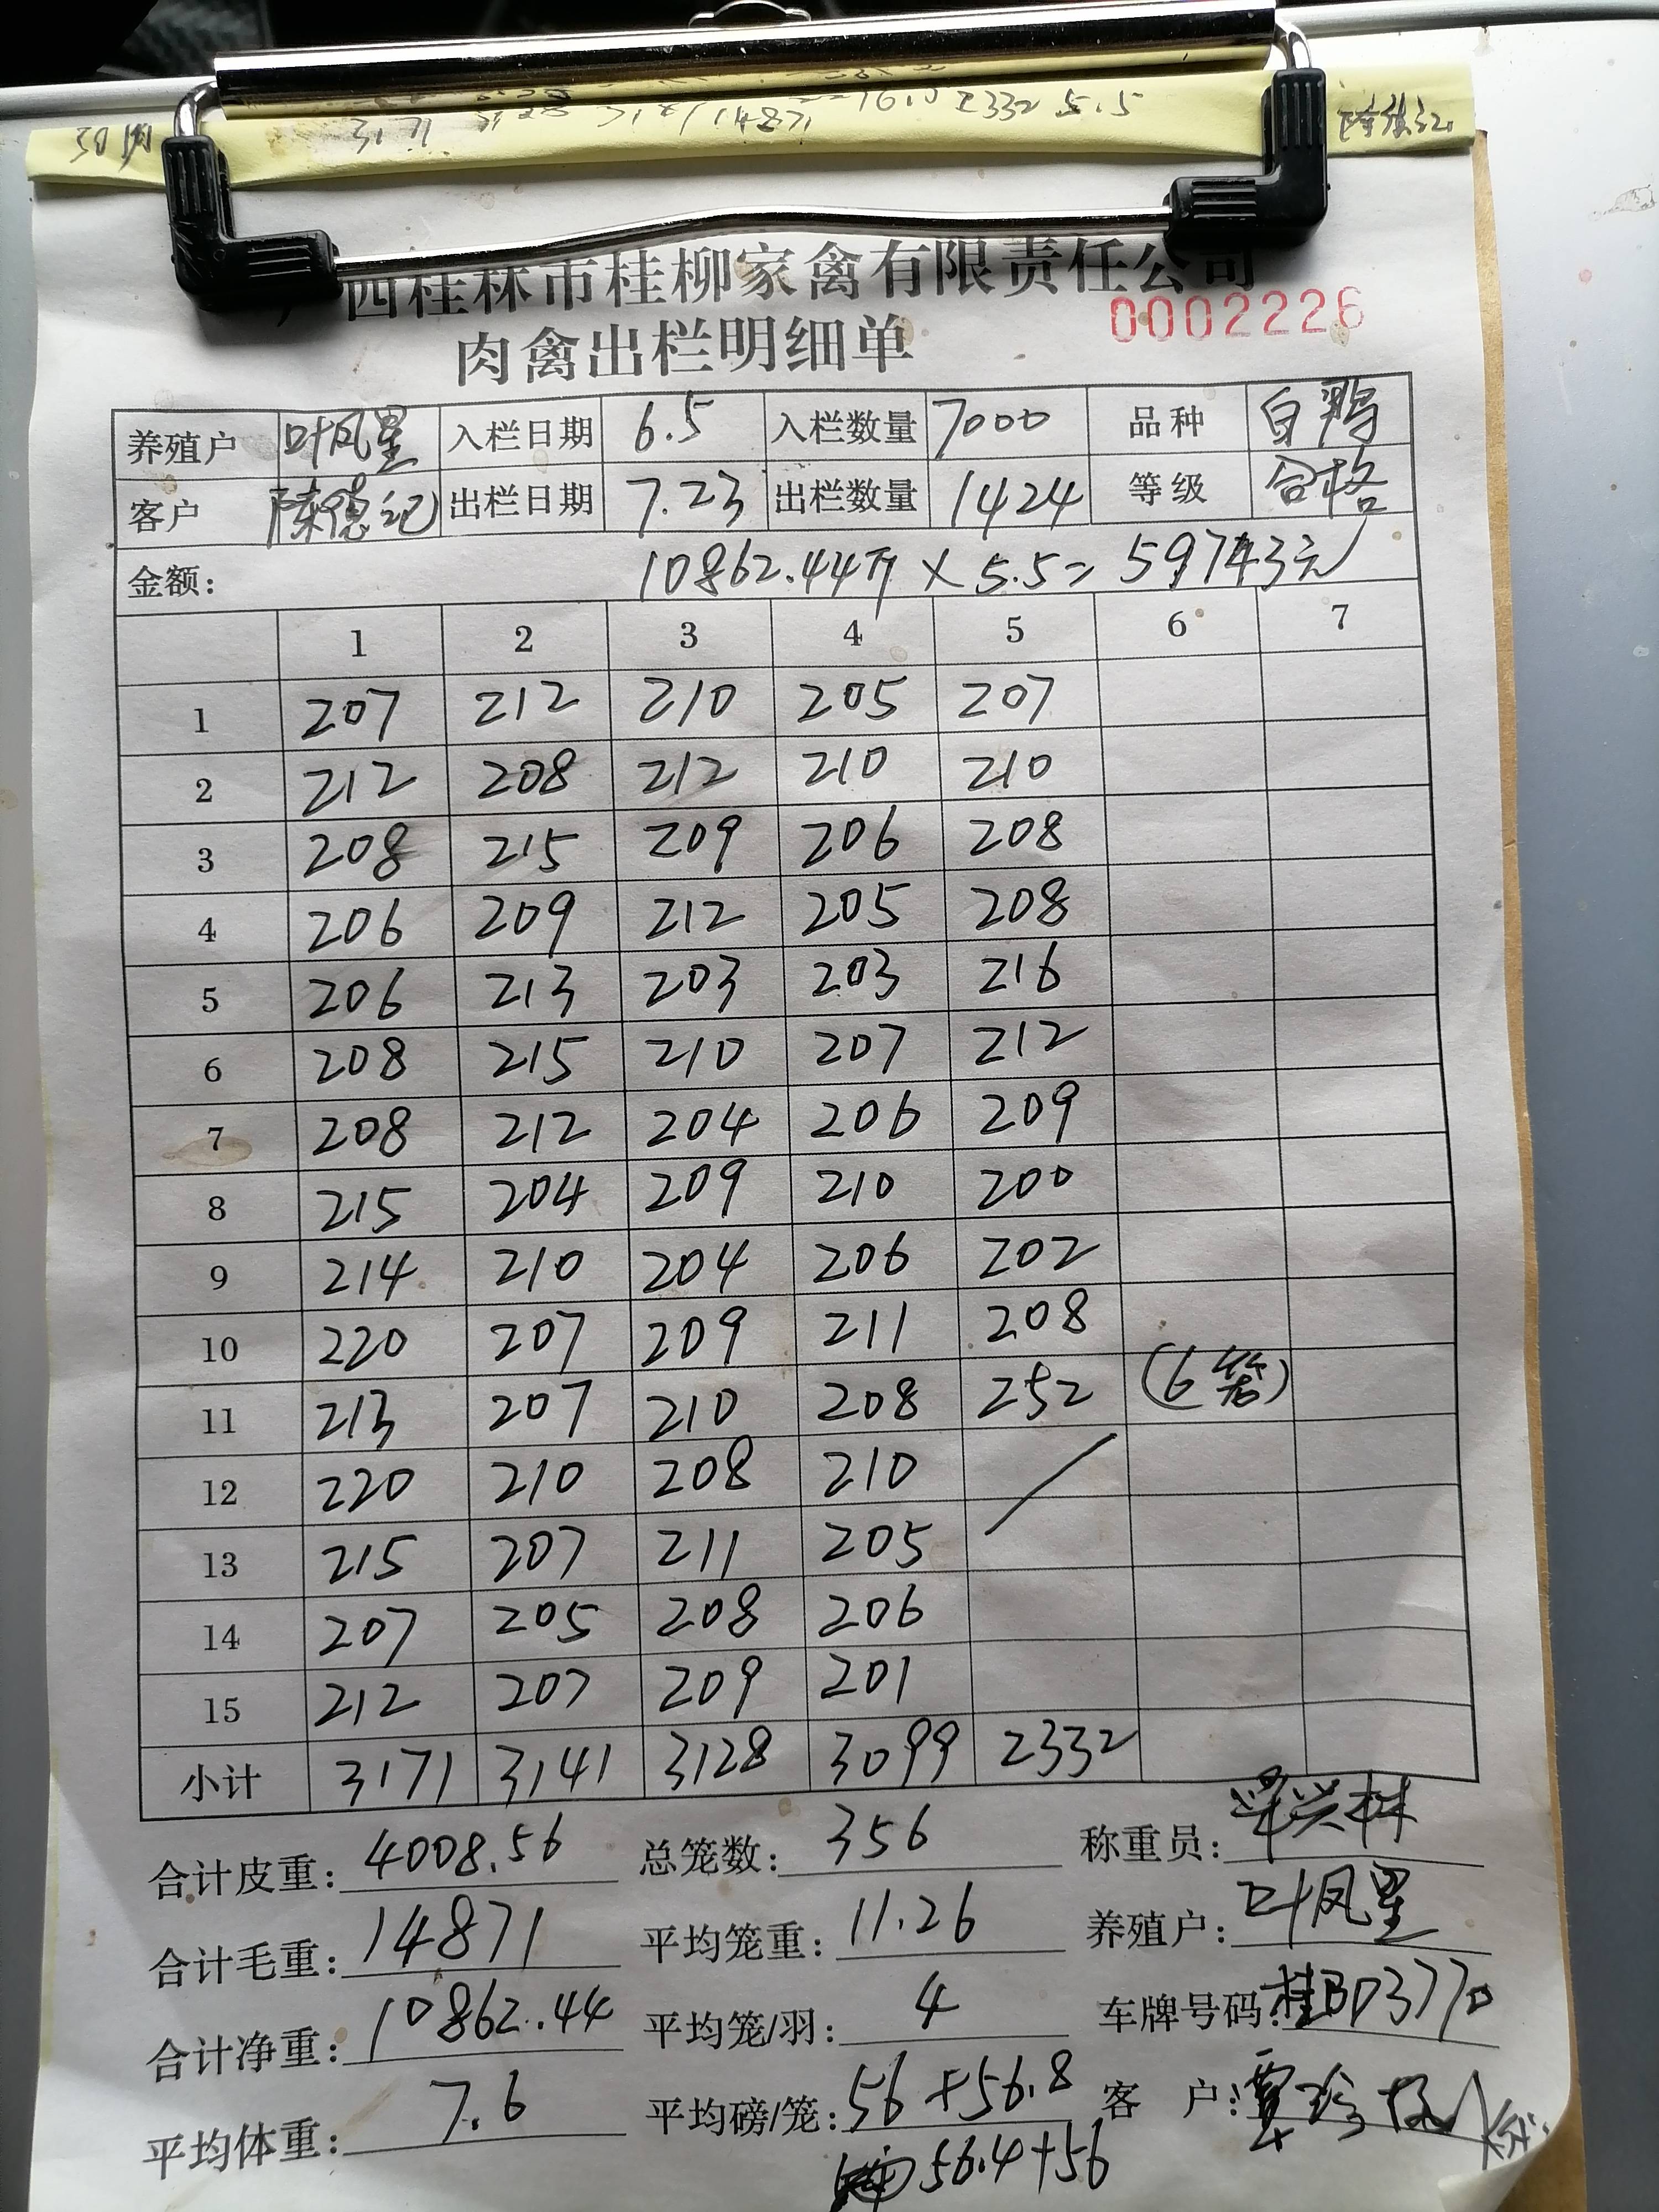 3171 14871 2332 5.5
西桂林市桂柳家禽有限责任公司
肉禽出栏明细单 0002226
养殖户 叶凤星 入栏日期 6.5 入栏数量 7000 品种 白鸭
客户 陈德记 出栏日期 7.23 出栏数量 1424 等级 合格
金额: 10862.44斤 × 5.5 = 59743元
1 2 3 4 5 6 7
1 207 212 210 205 207
2 212 208 212 210 210
3 208 215 209 206 208
4 206 209 212 205 208
5 206 213 203 203 216
6 208 215 210 207 212
7 208 212 204 206 209
8 215 204 209 210 200
9 214 210 204 206 202
10 220 207 209 211 208
11 213 207 210 208 252 (6笼)
12 220 210 208 210
13 215 207 211 205
14 207 205 208 206
15 212 207 209 201
小计 3171 3141 3128 3099 2332
合计皮重: 4008.56 总笼数: 356 称重员: 兴林
合计毛重: 14871 平均笼重: 11.26 养殖户: 叶凤星
合计净重: 10862.44 平均笼/羽: 4 车牌号码: 桂BD3770
平均体重: 7.6 平均磅/笼: 56+56.8 客户:
56.4+56